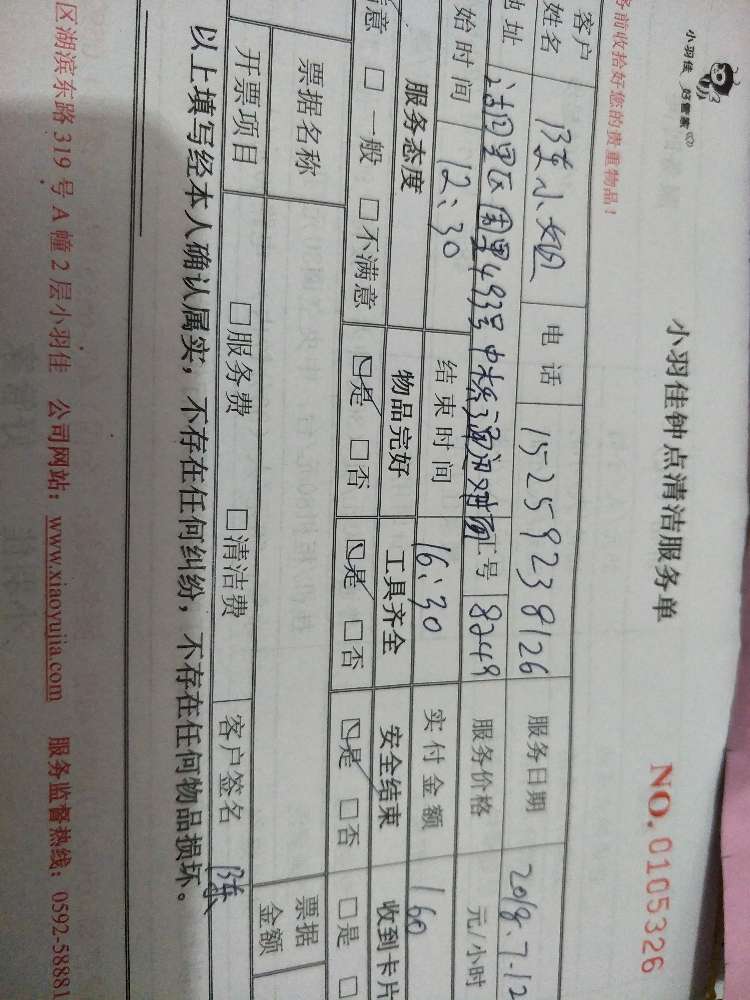 小羽佳 好管家
小羽佳钟点清洁服务单
NO.0105326
务前收拾好您的贵重物品!
客户姓名 陈小姐 电话 15259238126 服务日期 2018.7.12
地址 493号 对面 工号 8249 服务价格 元/小时
始时间 12:30 结束时间 16:30 实付金额 160
服务态度 物品完好 工具齐全 安全结束 收到卡片
意 □ 一般 □ 不满意 ☑是 □否 ☑是 □否 ☑是 □否 □是 □
票据名称 票据金额
开票项目 □服务费 □清洁费 客户签名 陈
以上填写经本人确认属实，不存在任何纠纷，不存在任何物品损坏。
区湖滨东路319号A幢2层小羽佳 公司网站：www.xiaoyujia.com 服务监督热线：0592-58881